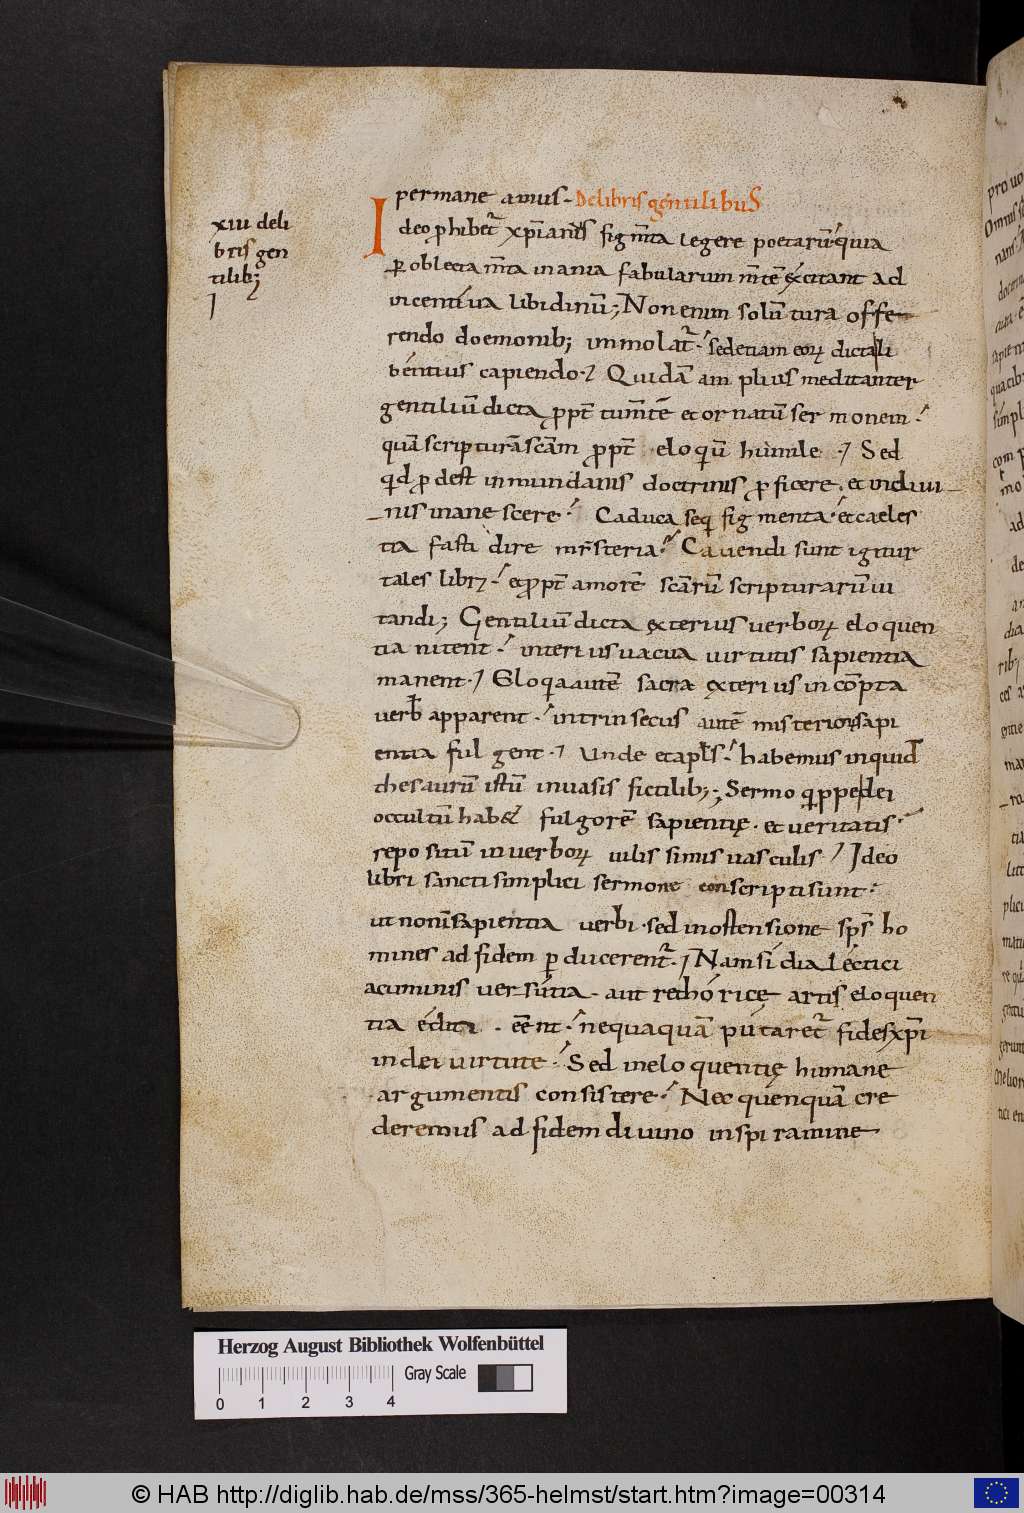 xiii deli
bris gen
tilib;
permaneamus. De libris gentilibuS
Ideo ꝓhibet᷑ xp̄ianus figm̄ta legere poetarū. quia
ꝑ oblectam̄ta inania fabularum m̄tē excitant ad
incentiua libidinū; Non enim solū tura offe
rendo doemonib; immolat᷑. sed etiam eoꝝ dicta li
bentius capiendo. Quidā am plius meditanter
gentiliū dicta ꝓpt̄ tum̄tē et ornatū ser monem.
quā scripturā sc̄am ꝓpt̄ eloquiū humile. Sed
qd ꝓdest inmundanis doctrinis ꝓficere. et indiui
nis inanescere. Caduca sequi figmenta. et caeles
tia fasti dire mysteria. Cauendi sunt igitur
tales libri. et ꝓpt̄ amorē sc̄arū scripturarū ui
tandi; Gentiliū dicta exterius uerboꝝ eloquen
tia nitent. interius uacua uirtutis sapientia
manent. Eloqia autē sacra exterius incōpta
uerb̄ apparent. intrinsecus autē misterioꝝ sapi
entia ful gent. Unde et apl̄s. habemus inquid
thesaurū istū inuasis fictilib;; Sermo qippe dei
occultū hab& fulgorē sapientię. et ueritatis.
repositū in uerboꝝ uilis simis uasculis. Ideo
libri sancti simplici sermone conscripti sunt.
ut non īsapientia uerbi. sed inostensione sps̄ ho
mines ad fidem ꝑducerent᷑. Nam si dialectici
acuminis uersutia. aut rethoricę artis eloquen
tia editi. eēnt. nequaquā putaret᷑ fides xp̄i
in dei uirtute. Sed ineloquentię humane
argumentis consistere. Nec quenquā cre
deremus ad fidem diuino inspiramine
Herzog August Bibliothek Wolfenbüttel
Gray Scale
0 1 2 3 4
© HAB http://diglib.hab.de/mss/365-helmst/start.htm?image=00314